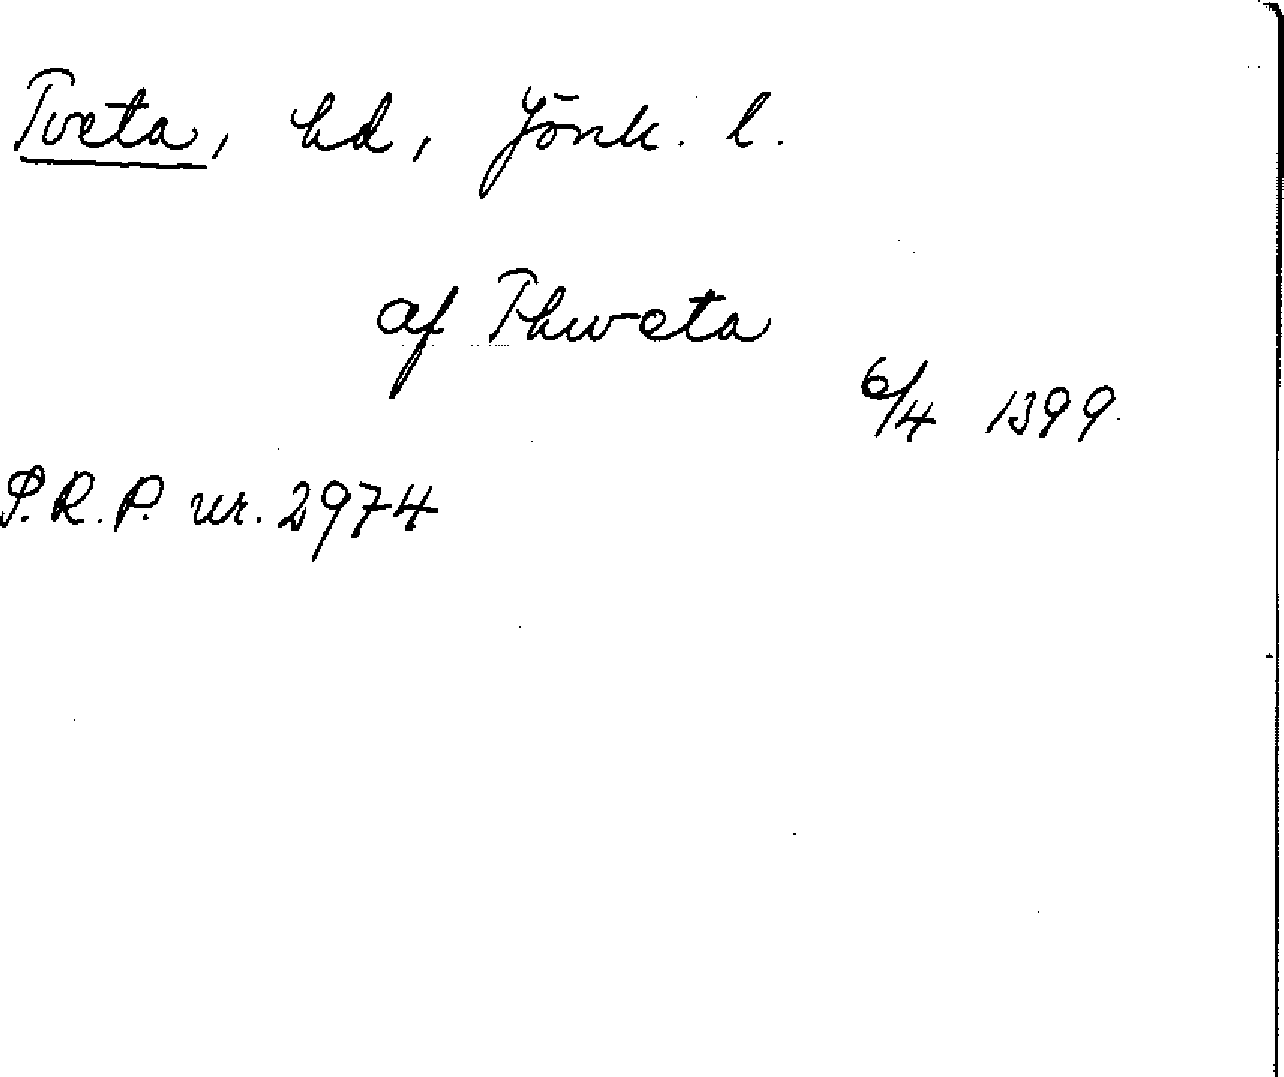 Tveta, hd, Jönk. l.
af Thweta
6/4 1399
P.R.P. nr. 2974